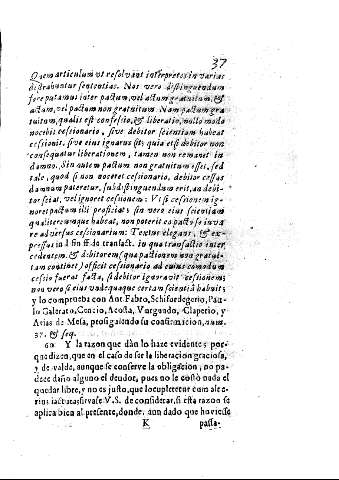 37
Quem articulum ut resolvant interpretes in varias
distrahuntur sententias. Nos vero distinguendum
fore putamus inter pactum, vel actum gratuitum, &
actum, vel pactum non gratuitum Nam pactum gra
tuitum, qualis est confessio, & liberatio, nullo modo
nocebit cessionario, sive debitor scientiam habeat
cessionis, sive eius ignarus sit; quia etsi debitor non
consequatur liberationem, tamen non remanet in
damno. Sin autem pactum non gratuitum esset, sed
tale, quod si non nocetet cessionario, debitor cessus
damnum pateretur, subdistinguendum erit, an debi-
tor sciat, vel ignoret cessionem: Vt si cessionem ig-
noret pactum illi proficiat; si vero eius scientiam
qualitercumque habeat, non poterit ex pacto se iuva
re adversus cessionarium: Textus elegans, & ex-
pressus in l. fin ff. de transact. in qua transactio inter
cedentem, & debitorem (qua pactionem non gratui-
tam continet) officit cessionario ad cuius commodum
cessio fuerat facta, si debitor ignoravit cessionem;
non vero si eius vndequaque certam scientiã habuit;
y lo comprueba con Ant. Fabro, Schifordegerio, Pau-
lo Galerato, Cencio, Acosta, Vurgundo, Claperio, y
Arias de Mesa, prosiguiendo su confirmacion, num.
37. & seq.
60 Y la razon que dàn lo haze evidente; por-
que dizen, que en el caso de ser la liberacion graciosa,
y de valde, aunque se conserve la obligacion, no pa-
dece daño alguno el deudor, pues no le costò nada el
quedar libre, y no es justo, que locupletetur cum alte-
rius iactura: sirvase V.S. de considerar, si esta razon se
aplica bien al presente, donde, aun dado que huviesse
K passa-